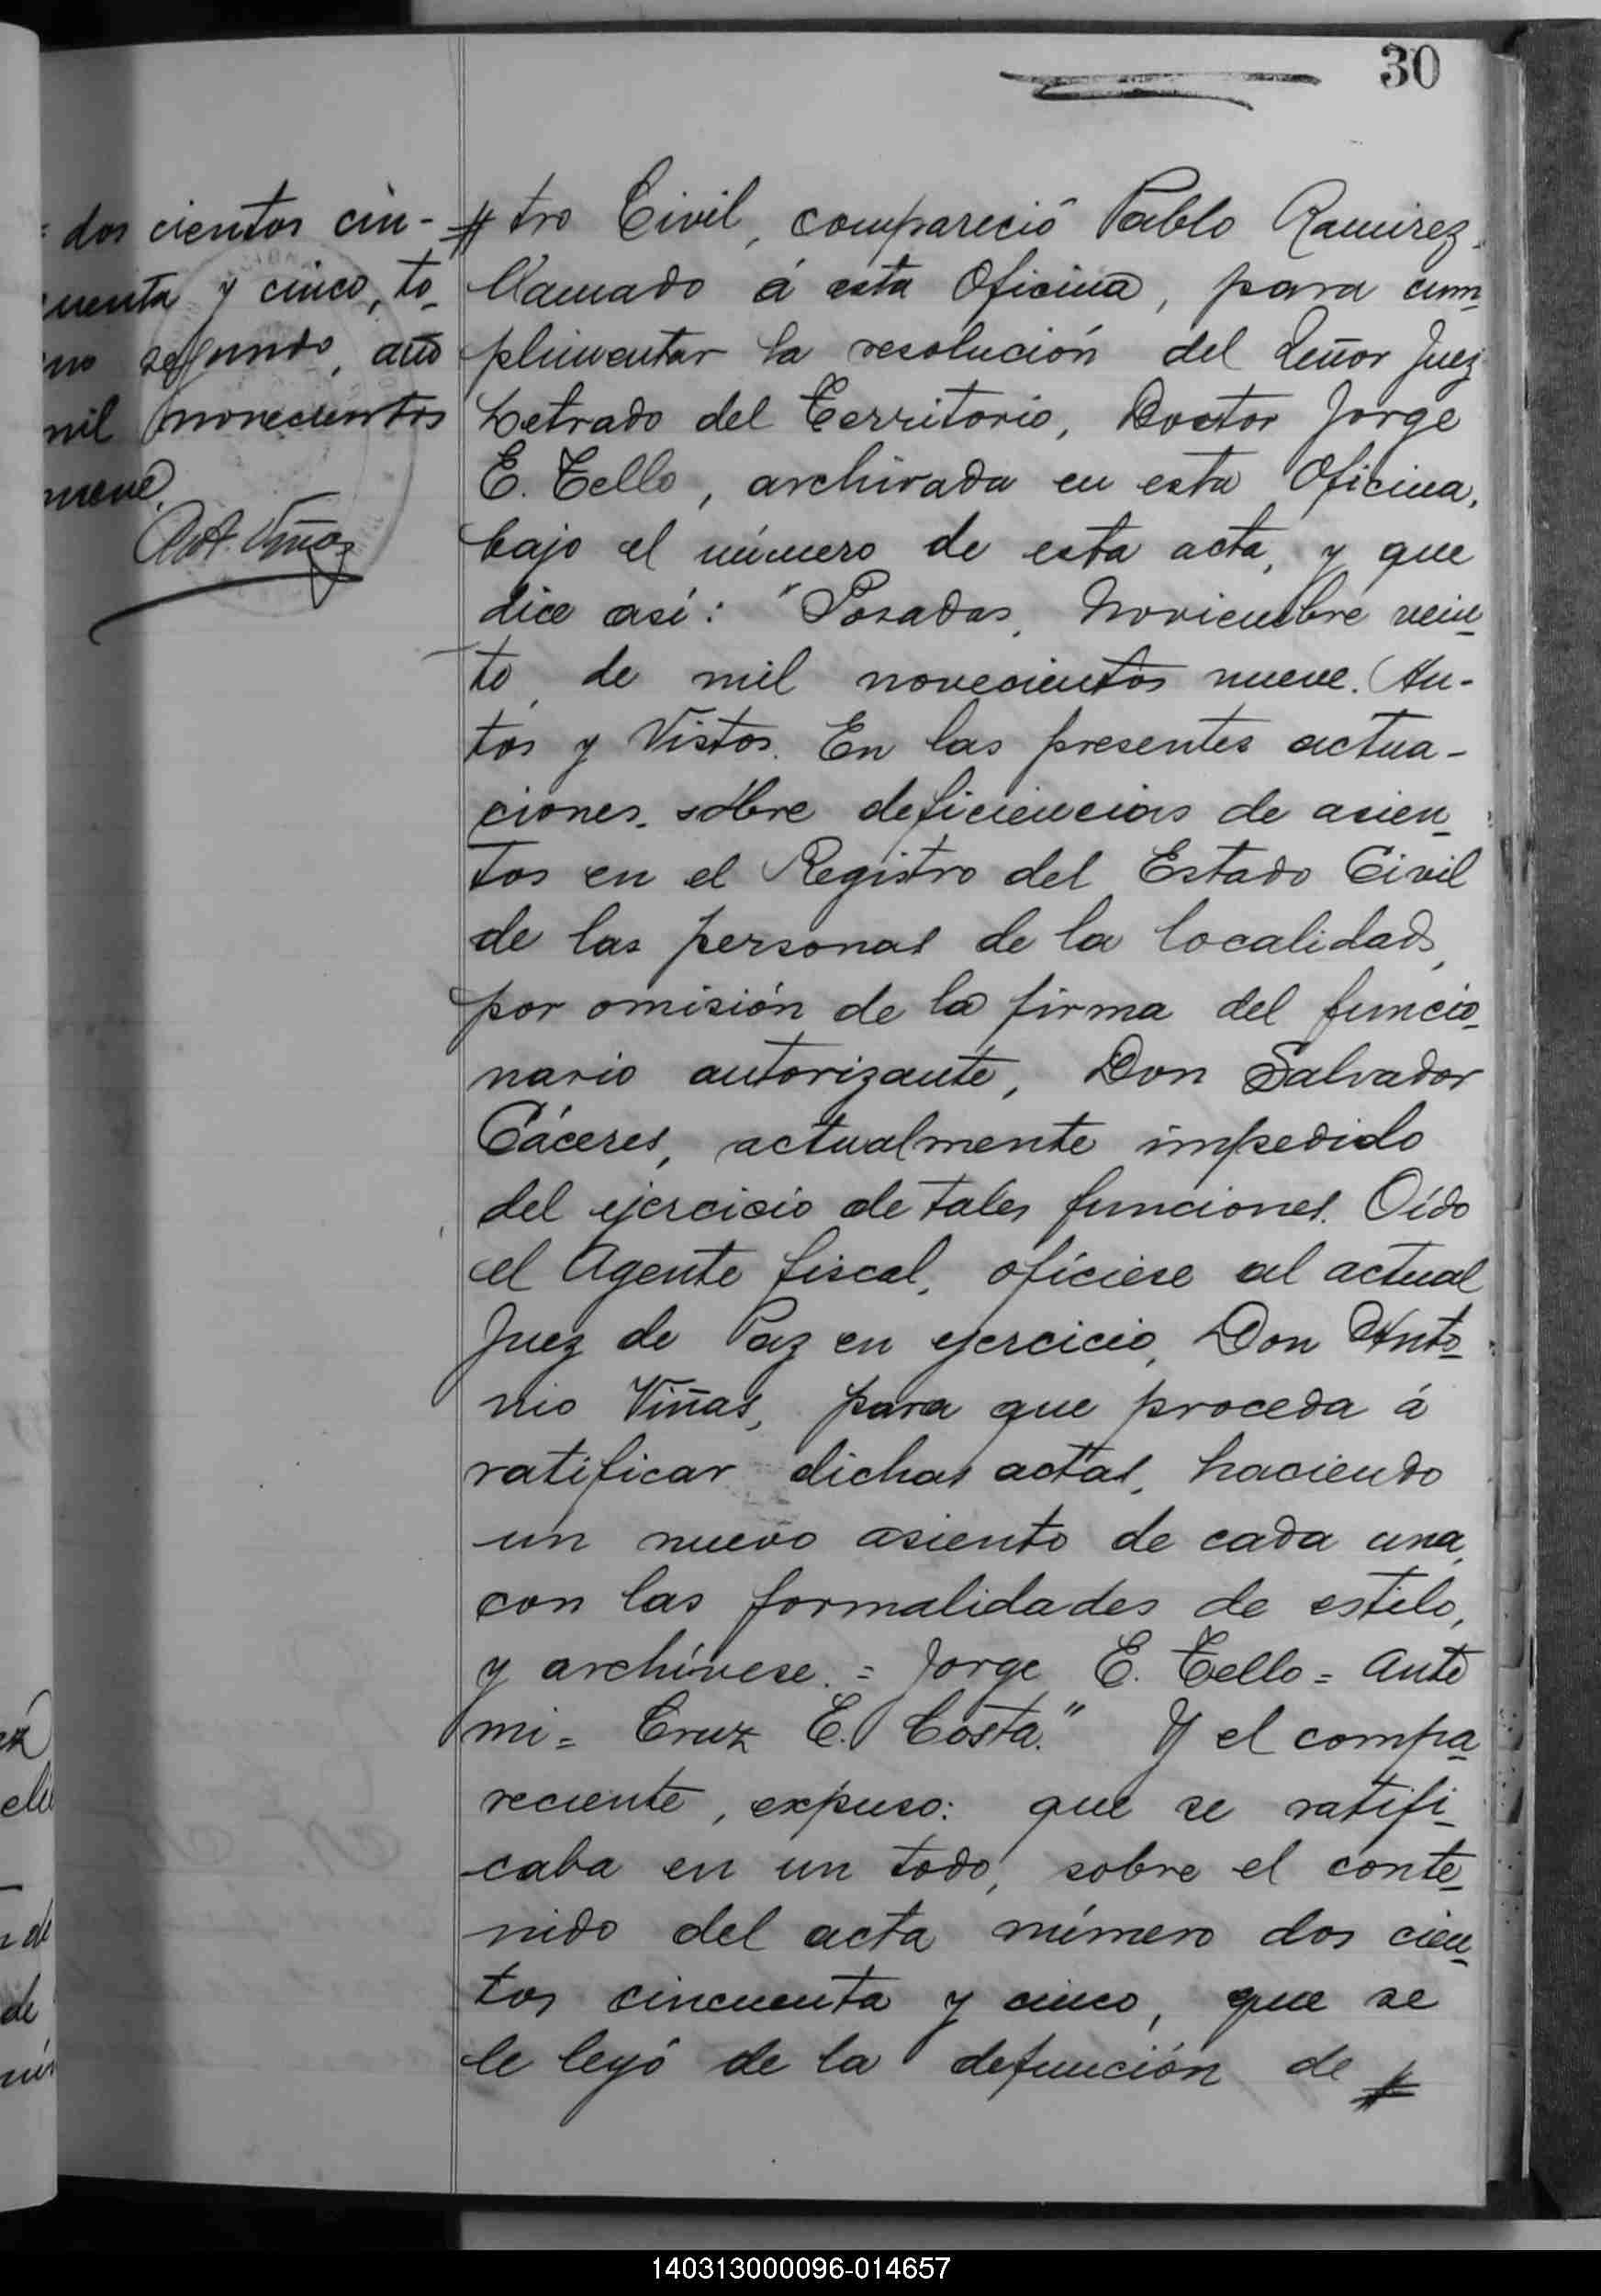 30
dos cientos cin-
cuenta y cinco, to_
mo segundo, año
mil novecientos
nueve.
Ant. Viñas
tro Civil, compareció Pablo Ramirez
llamado á esta Oficina, para cum_
plimentar la resolución del Señor Juez
Letrado del Territorio, Doctor Jorge
E. Tello, archivada en esta Oficina,
bajo el número de esta acta, y que
dice así: "Posadas, Noviembre vein_
te, de mil novecientos nueve. Au-
tos y Vistos. En las presentes actua-
ciones sobre deficiencias de asien_
tos en el Registro del Estado Civil
de las personas de la localidad,
por omisión de la firma del funcio_
nario autorizante, Don Salvador
Cáceres, actualmente impedido
del ejercicio de tales funciones. Oído
el Agente fiscal, ofíciese al actual
Juez de Paz en ejercicio, Don Anto_
nio Viñas, para que proceda á
ratificar dichas actas, haciendo
un nuevo asiento de cada una,
con las formalidades de estilo,
y archívese. = Jorge E. Tello = Ante
mi = Cruz E. Costa." Y el compa_
reciente, expuso: que se ratifi_
caba en un todo, sobre el conte_
nido del acta número dos cien_
tos cincuenta y cinco, que se
le leyó de la defunción de
140313000096-014657